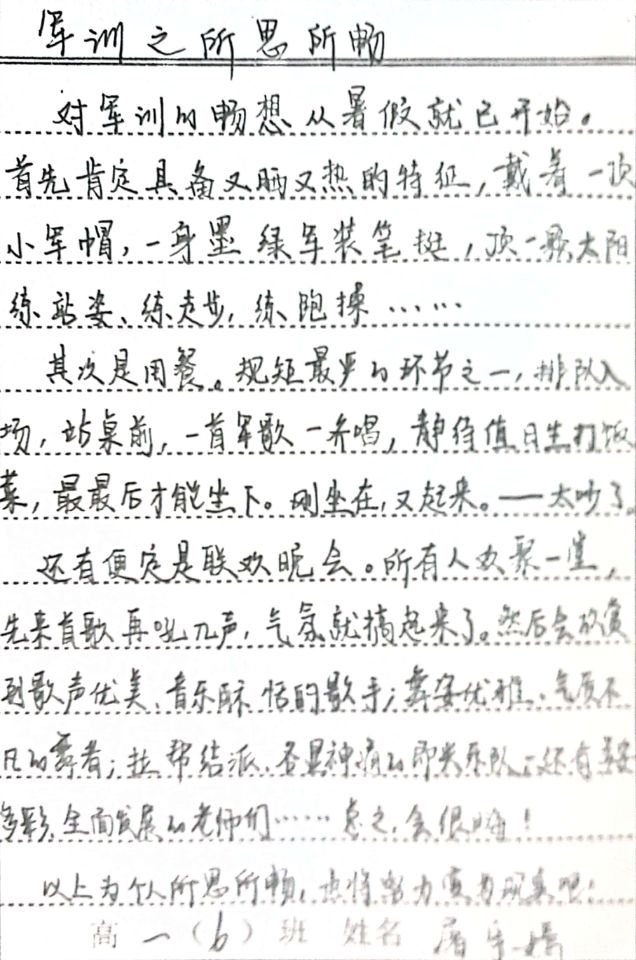 军训之所思所畅
对军训的畅想从暑假就已开始。
首先肯定具备又晒又热的特征，戴着一顶
小军帽，一身墨绿军装笔挺，顶一颗太阳
练站姿、练走步，练跑操……
其次是用餐。规矩最严的环节之一，排队入
场，站桌前，一首军歌一齐唱，静待值日生打饭
菜，最最后才能坐下。刚坐在，又起来。——太吵了。
还有便定是联欢晚会。所有人欢聚一堂，
先来首歌再吼几声，气氛就搞起来了。然后会欣赏
到歌声优美、音乐陶恬的歌手；舞姿优雅、气质不
凡的舞者；拉帮结派、各显神通的即兴乐队；还有
多彩、全面发展的老师们……总之，会很嗨！
以上为个人所思所畅，也将努力变为现实吧！
高一（6）班 姓名